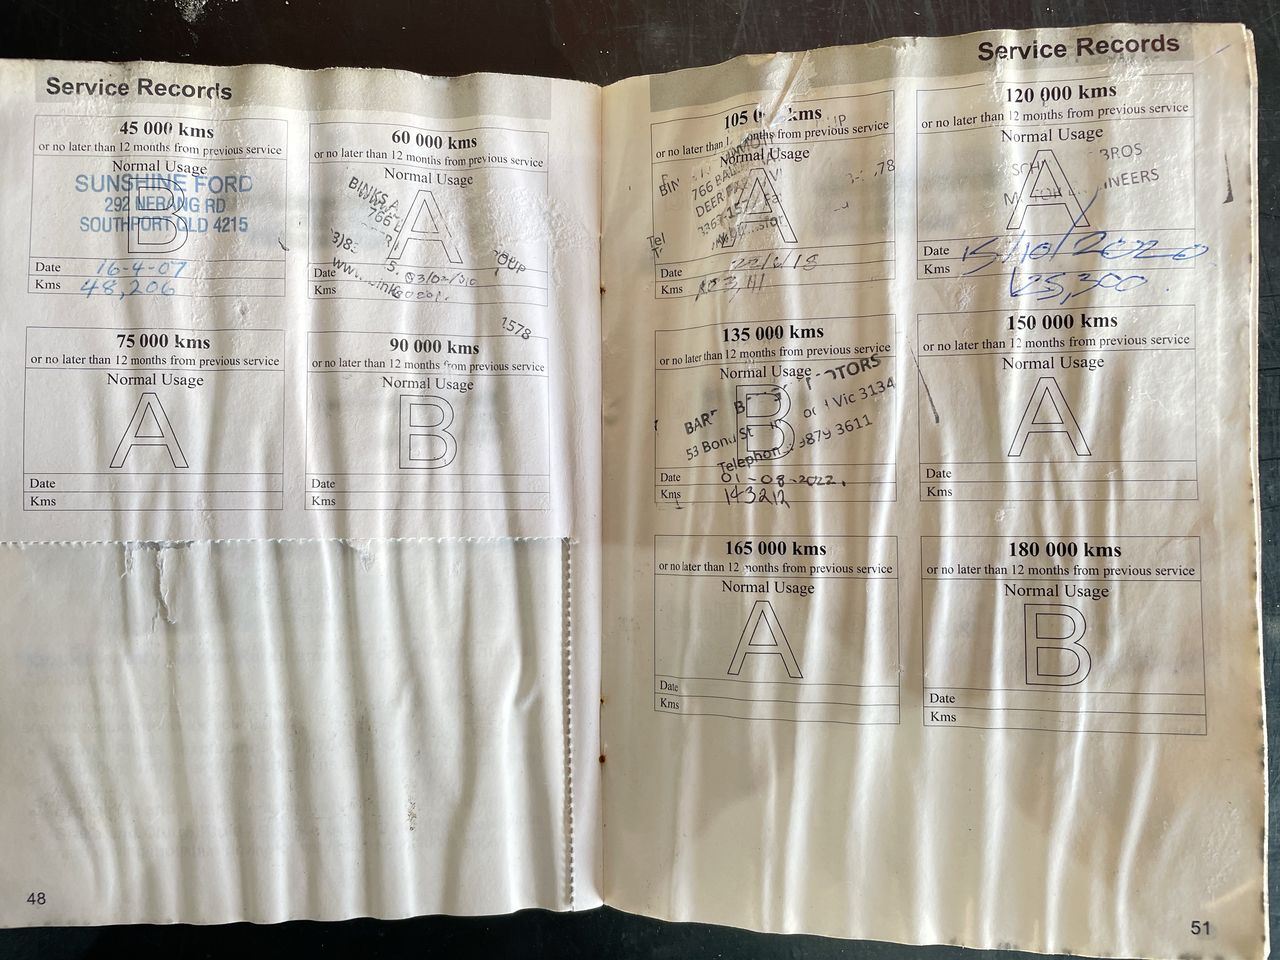 Service Records
45 000 kms
or no later than 12 months from previous service
Normal Usage
B
SUNSHINE FORD
292 NERANG RD
SOUTHPORT QLD 4215
Date 16-4-07
Kms 48,206
60 000 kms
or no later than 12 months from previous service
Normal Usage
A
BINKS
766
OUP
Date
Kms
1578
75 000 kms
or no later than 12 months from previous service
Normal Usage
A
Date
Kms
90 000 kms
or no later than 12 months from previous service
Normal Usage
B
Date
Kms
48
Service Records
105 kms
or no later than months from previous service
Normal Usage
A
BIN
766
DEER
Tel
Date
Kms
120 000 kms
or no later than 12 months from previous service
Normal Usage
A
BROS
Date 15/10/2020
Kms 125,300
135 000 kms
or no later than 12 months from previous service
Normal Usage
B
53 St Vic 3134
Telephone 9879 3611
Date 01-08-2022.
Kms 143212
150 000 kms
or no later than 12 months from previous service
Normal Usage
A
Date
Kms
165 000 kms
or no later than 12 months from previous service
Normal Usage
A
Date
Kms
180 000 kms
or no later than 12 months from previous service
Normal Usage
B
Date
Kms
51